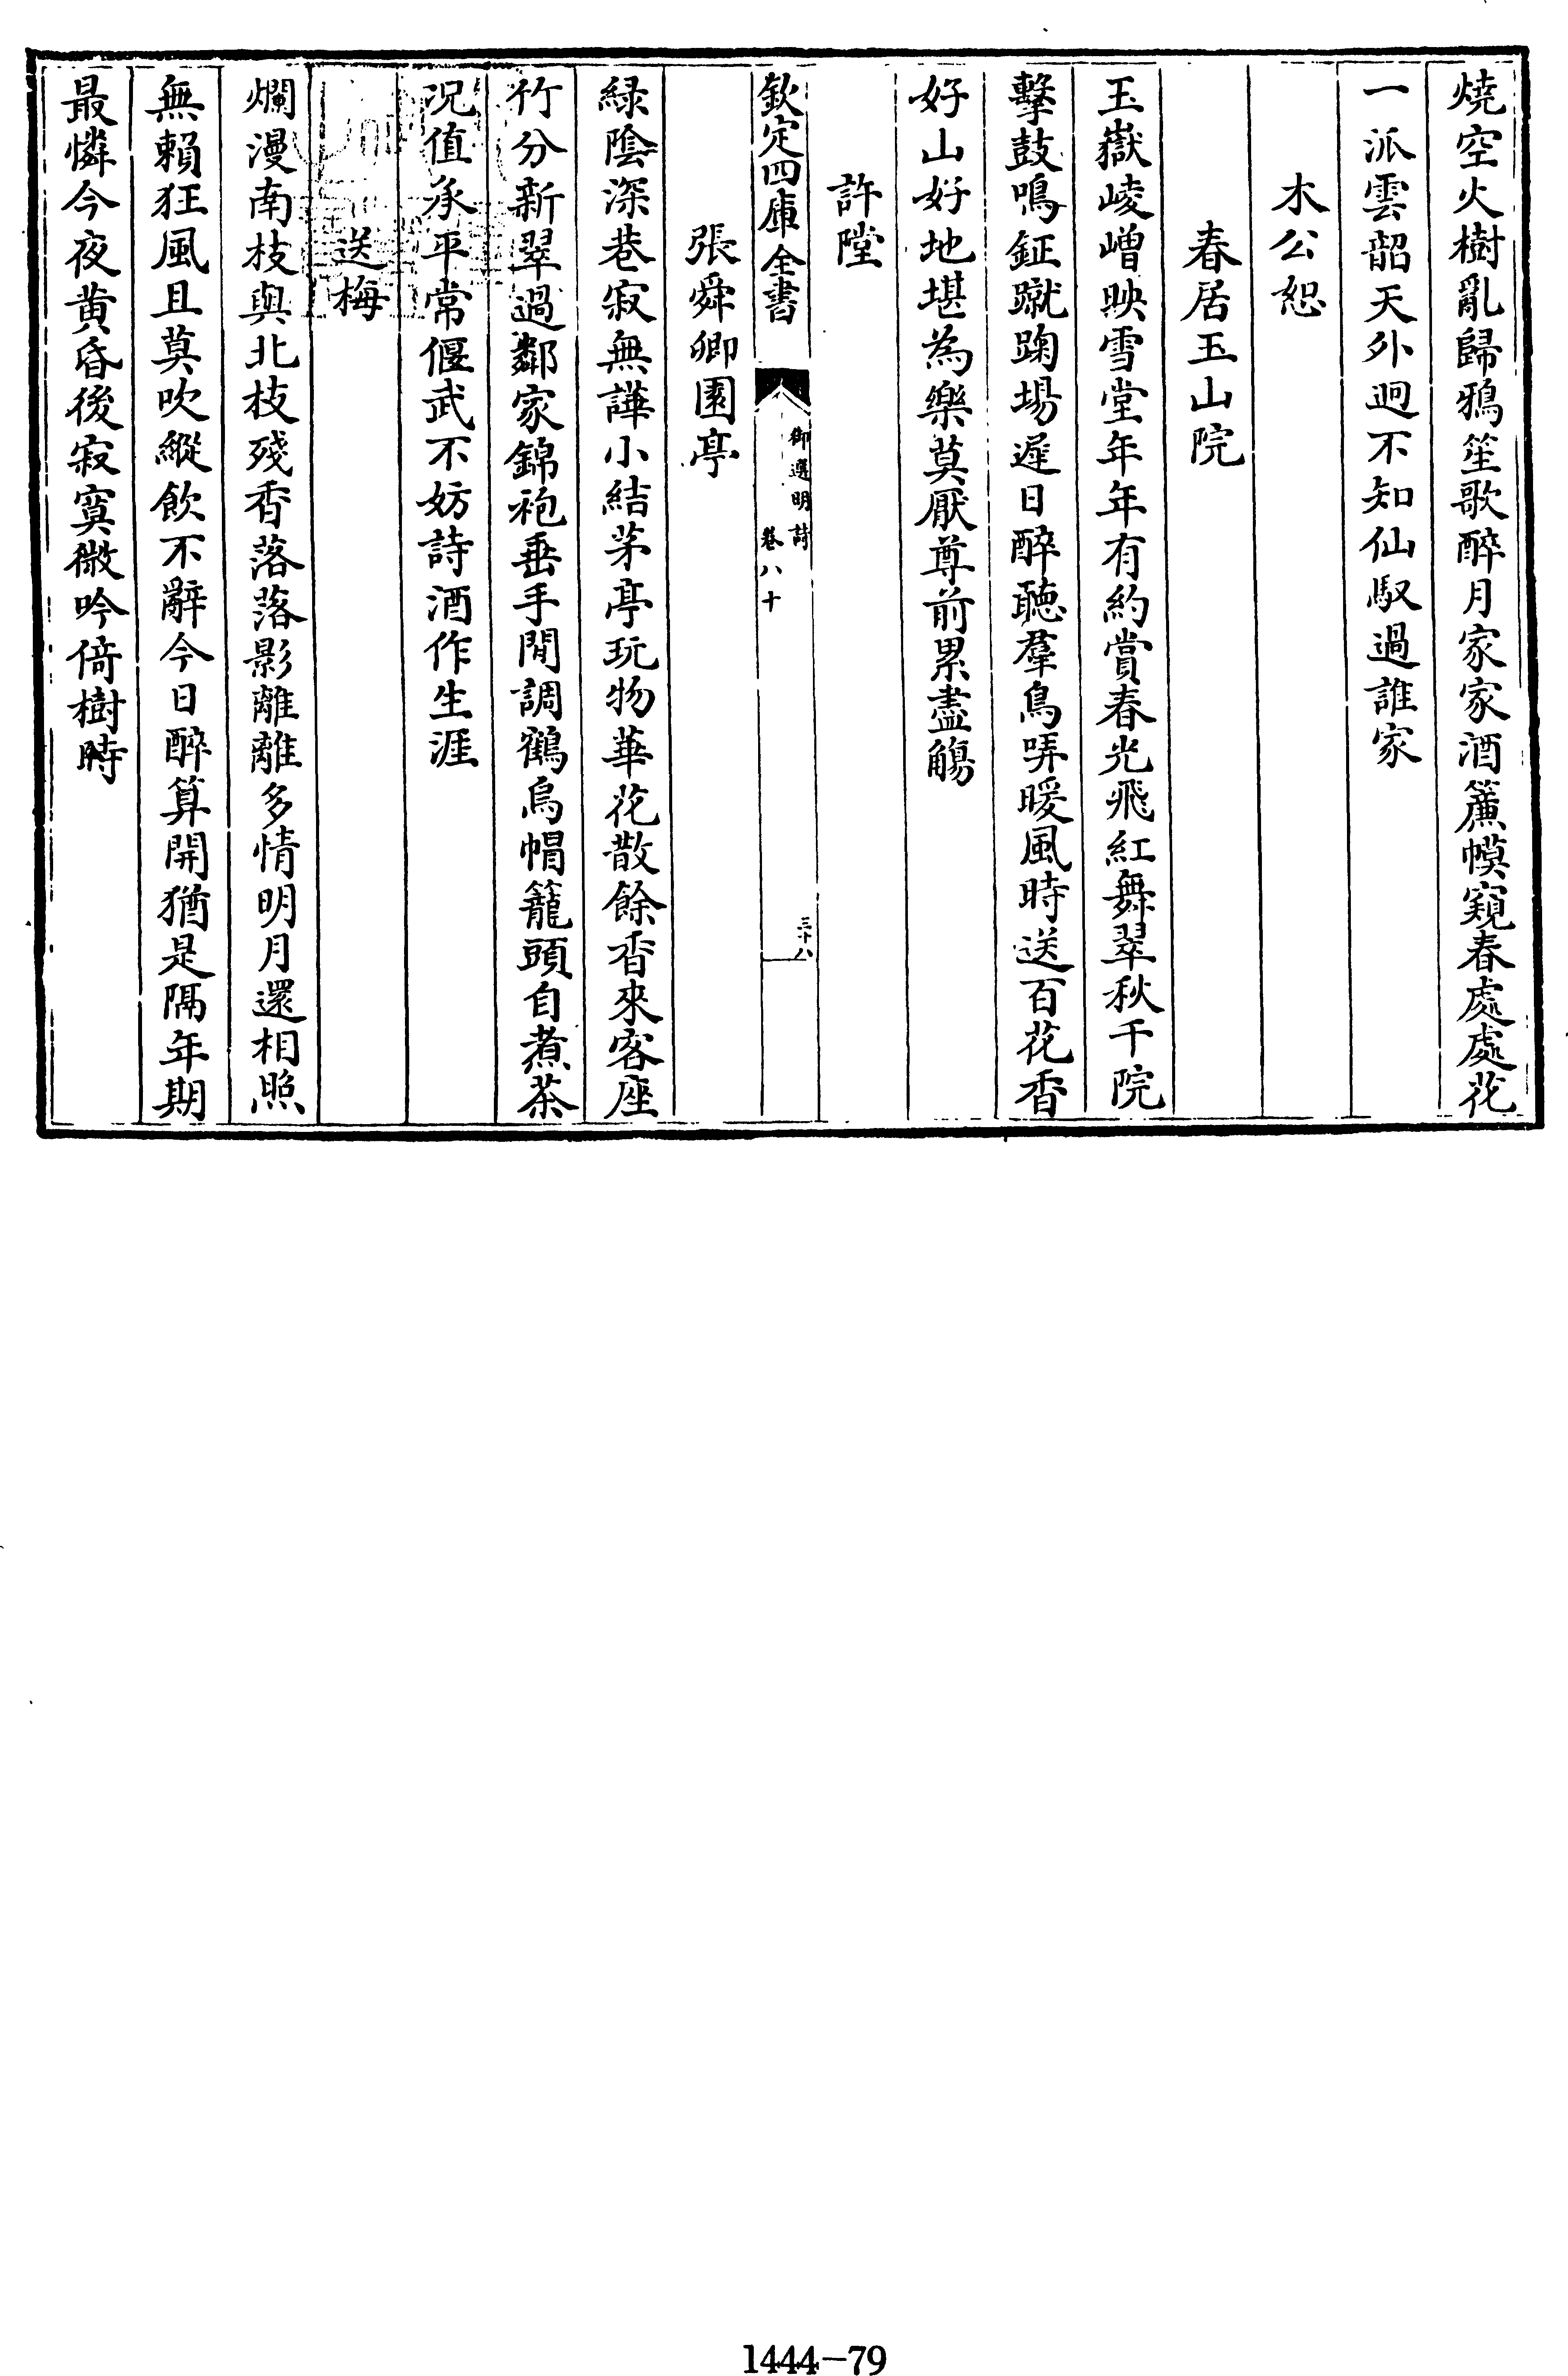 燒空火樹亂歸鴉笙歌醉月家家酒簾幙窺春處處花
一派雲韶天外迥不知仙馭過誰家
木公恕
春居玉山院
玉嶽崚嶒映雪堂年年有約賞春光飛紅舞翠秋千院
擊鼓鳴鉦蹴踘場遲日醉聽羣鳥哢暖風時送百花香
好山好地堪為樂莫厭尊前累盡觴
許瑝
欽定四庫全書
御選明詩
卷八十
三十八
張舜卿園亭
緑陰深巷寂無譁小結茅亭玩物華花散餘香來客座
竹分新翠過鄰家錦袍垂手閒調鶴烏帽籠頭自煮茶
况值承平常偃武不妨詩酒作生涯
送梅
爛漫南枝與北枝殘香落落影離離多情明月還相照
無賴狂風且莫吹縱飲不辭今日醉算開猶是隔年期
最憐今夜黄昏後寂寞微吟倚樹時
1444-79